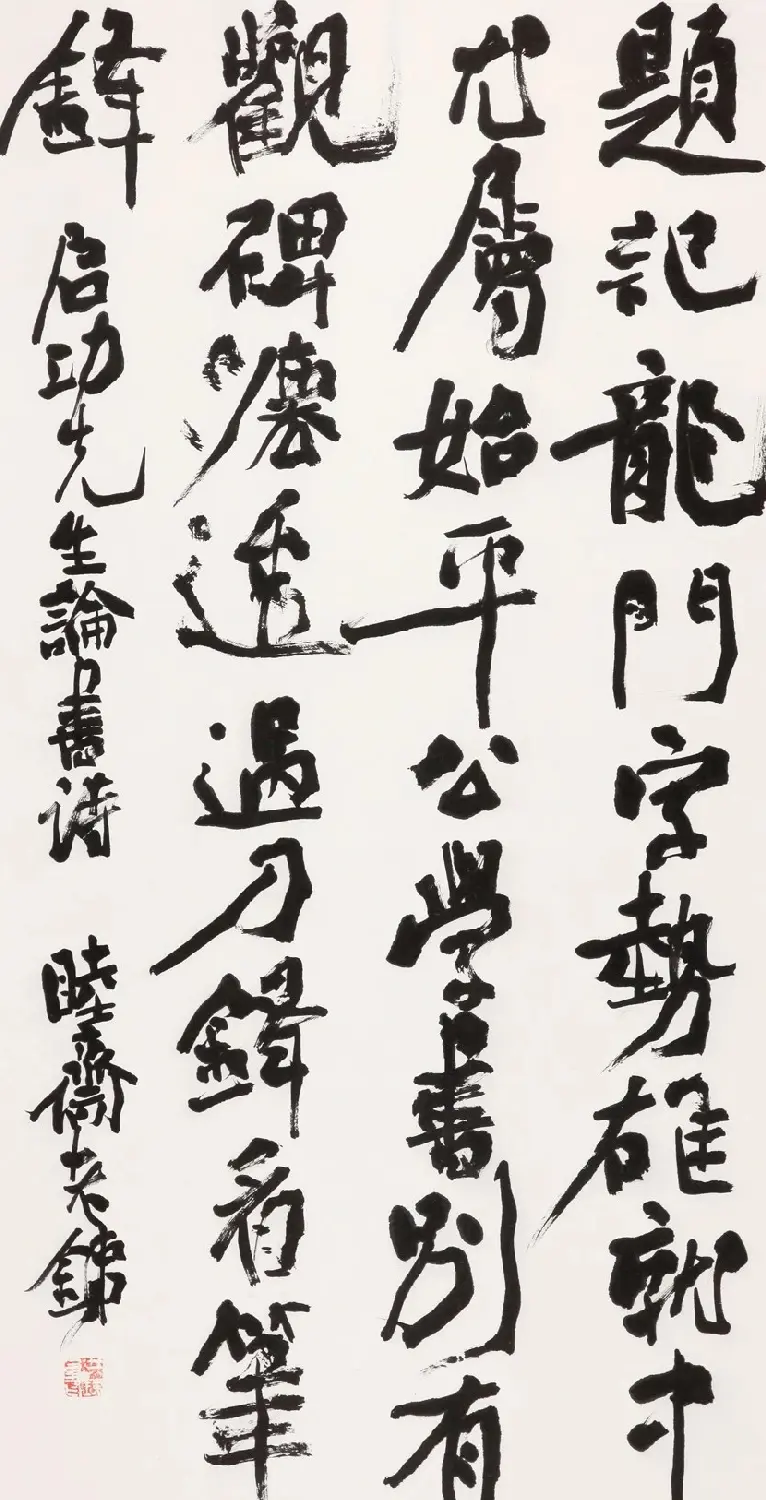 題記龍門字勢雄就中
尤屬始平公學書別有
觀碑灋透過刀鋒看筆
鋒 启功先生論書詩 睦齋老銕